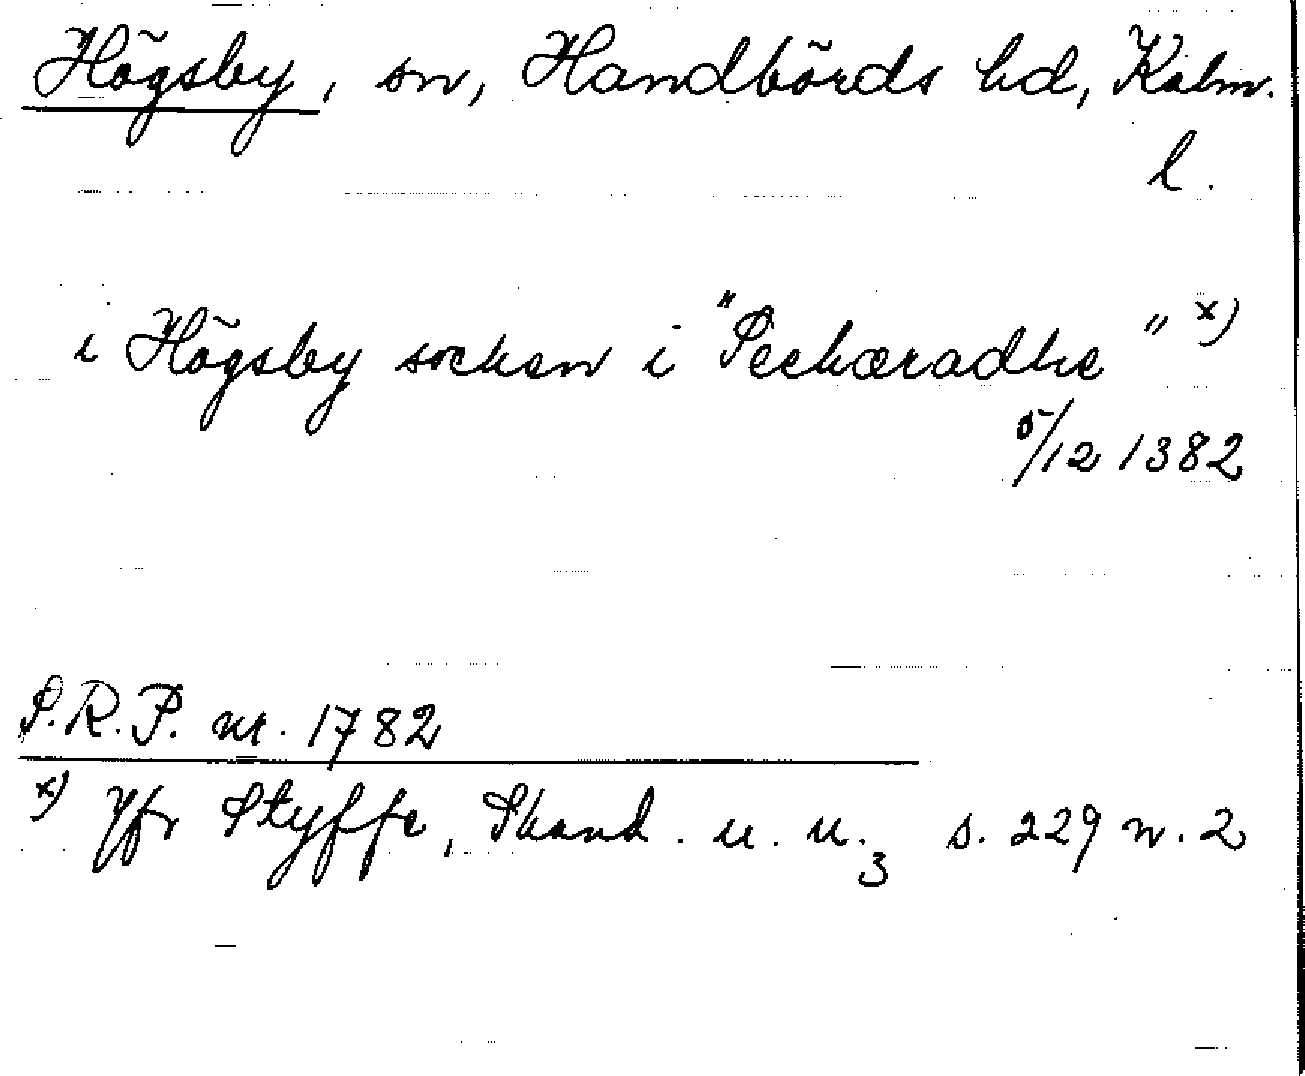 Högsby, sn, Handbörds hd, Kalm.
l.
i Högsby socken i "Peehæradhe" x)
5/12 1382
S.R.P. nr. 1782
x) Jfr Styffe, Skand. u. u. 3 s. 229 n. 2